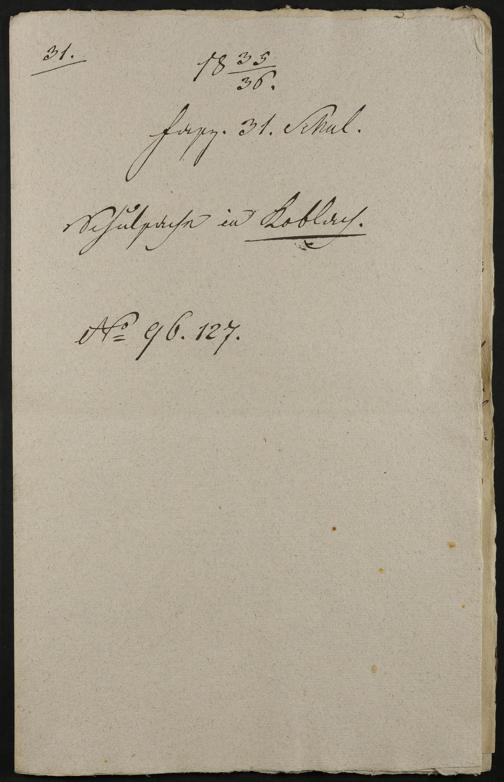 31.
18 35/36.
Fasz. 31. Schul.
Schulsache in Koblach.
No 96. 127.